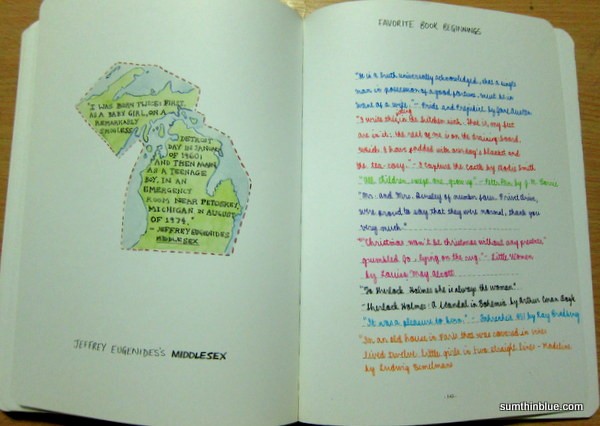 "I WAS BORN TWICE: FIRST,
AS A BABY GIRL, ON A
REMARKABLY
SMOGLESS
DETROIT
DAY IN JANUARY
OF 1960;
AND THEN AGAIN,
AS A TEENAGE
BOY, IN AN
EMERGENCY
ROOM NEAR PETOSKEY,
MICHIGAN, IN AUGUST
OF 1974."
- JEFFREY EUGENIDES
MIDDLESEX
JEFFREY EUGENIDES'S MIDDLESEX
FAVORITE BOOK BEGINNINGS
"It is a truth universally acknowledged, that a single
man in possession of a good fortune, must be in
want of a wife." - Pride and Prejudice by Jane Austen
"I write this sitting in the kitchen sink. That is, my feet
are in it; the rest of me is on the draining board,
which I have padded with our dog's blanket and
the tea-cosy." - I Capture the Castle by Dodie Smith
"All children, except one, grow up." - Peter Pan by J.M. Barrie
"Mr. and Mrs. Dursley of number four, Privet Drive,
were proud to say that they were normal, thank you
very much."
"Christmas won't be Christmas without any presents"
grumbled Jo, lying on the rug." - Little Women
by Louisa May Alcott
"To Sherlock Holmes she is always the woman"
- Sherlock Holmes: A Scandal in Bohemia by Arthur Conan Doyle
"It was a pleasure to burn." - Fahrenheit 451 by Ray Bradbury
"In an old house in Paris that was covered in vines
lived twelve little girls in two straight lines - Madeline
by Ludwig Bemelmans
sumthinblue.com